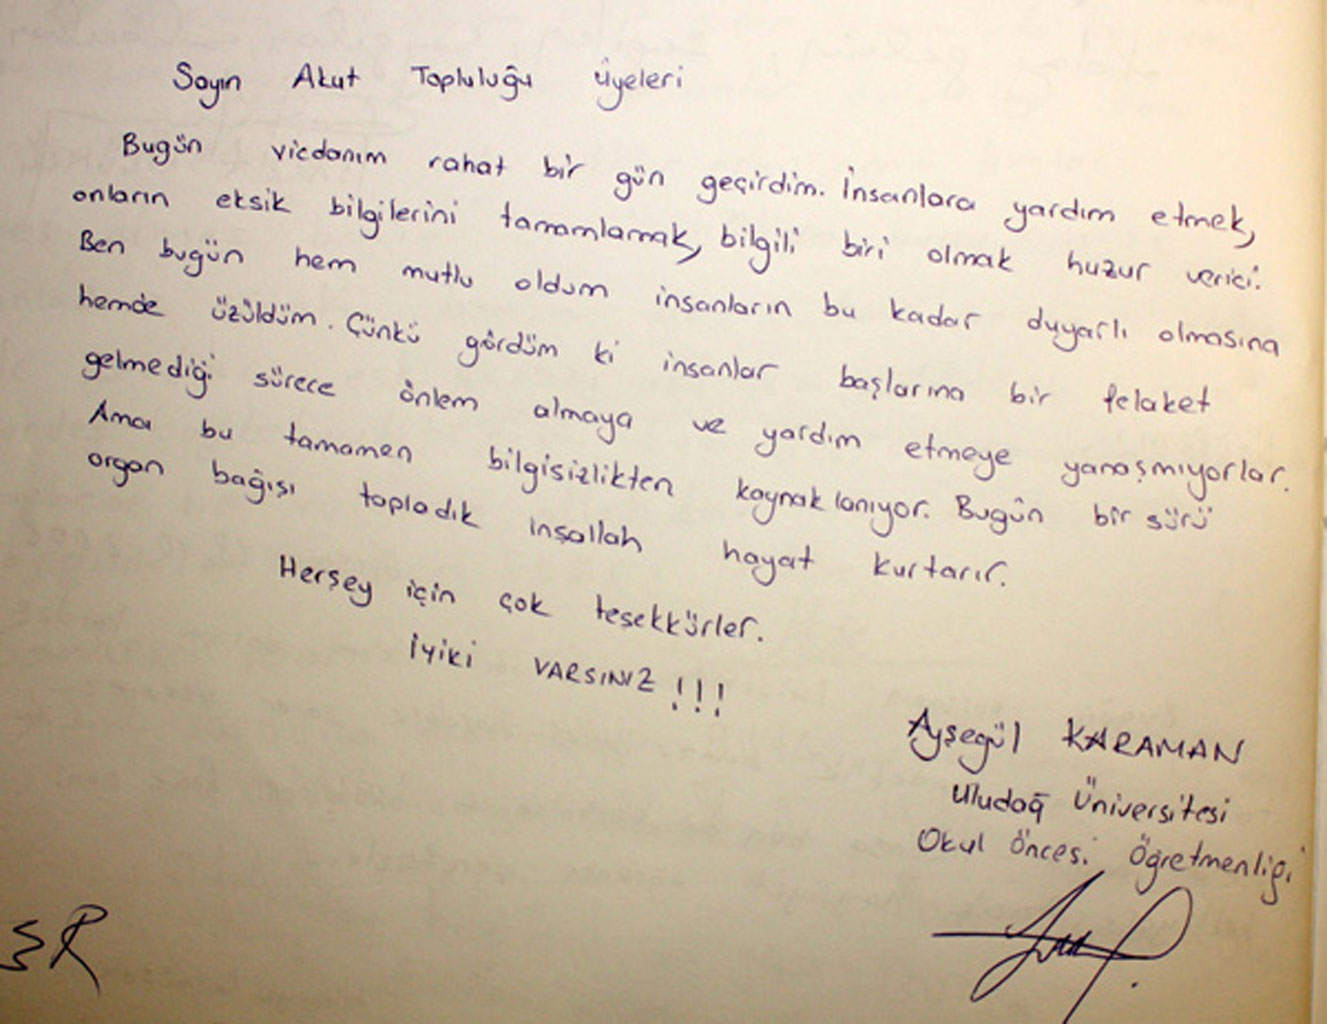 Sayın Akut Topluluğu Üyeleri
Bugün vicdanım rahat bir gün geçirdim. İnsanlara yardım etmek,
onların eksik bilgilerini tamamlamak, bilgili biri olmak huzur verici.
Ben bugün hem mutlu oldum insanların bu kadar duyarlı olmasına
hemde üzüldüm. Çünkü gördüm ki insanlar başlarına bir felaket
gelmediği sürece önlem almaya ve yardım etmeye yanaşmıyorlar.
Ama bu tamamen bilgisizlikten kaynaklanıyor. Bugün bir sürü
organ bağışı topladık inşallah hayat kurtarır.
Herşey için çok teşekkürler.
İyiki VARSINIZ !!!
Ayşegül KARAMAN
Uludağ Üniversitesi
Okul Öncesi Öğretmenliği